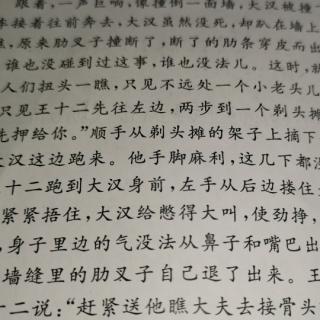 跟着，一声巨响，像撞倒一面墙，大汉被撞
接着往前奔去，大汉虽然没死，却趴在墙上
，原来肋叉子撞断了，断了的肋条穿皮而出
谁也没碰到过这事，谁也没法儿。这时，就
人们扭头一瞧，只见不远处一个小老头儿
只见王十二先往左边，两步到一个剃头摊
先押给你。”顺手从剃头摊的架子上摘下
大汉这边跑来。他手脚麻利，这几下都没
十二跑到大汉身前，左手从后边搂住
紧紧捂住，大汉给憋得大叫，使劲挣，
，身子里边的气没法从鼻子和嘴巴出
墙缝里的肋叉子自己退了出来。王
十二说：“赶紧送他瞧大夫去接骨头